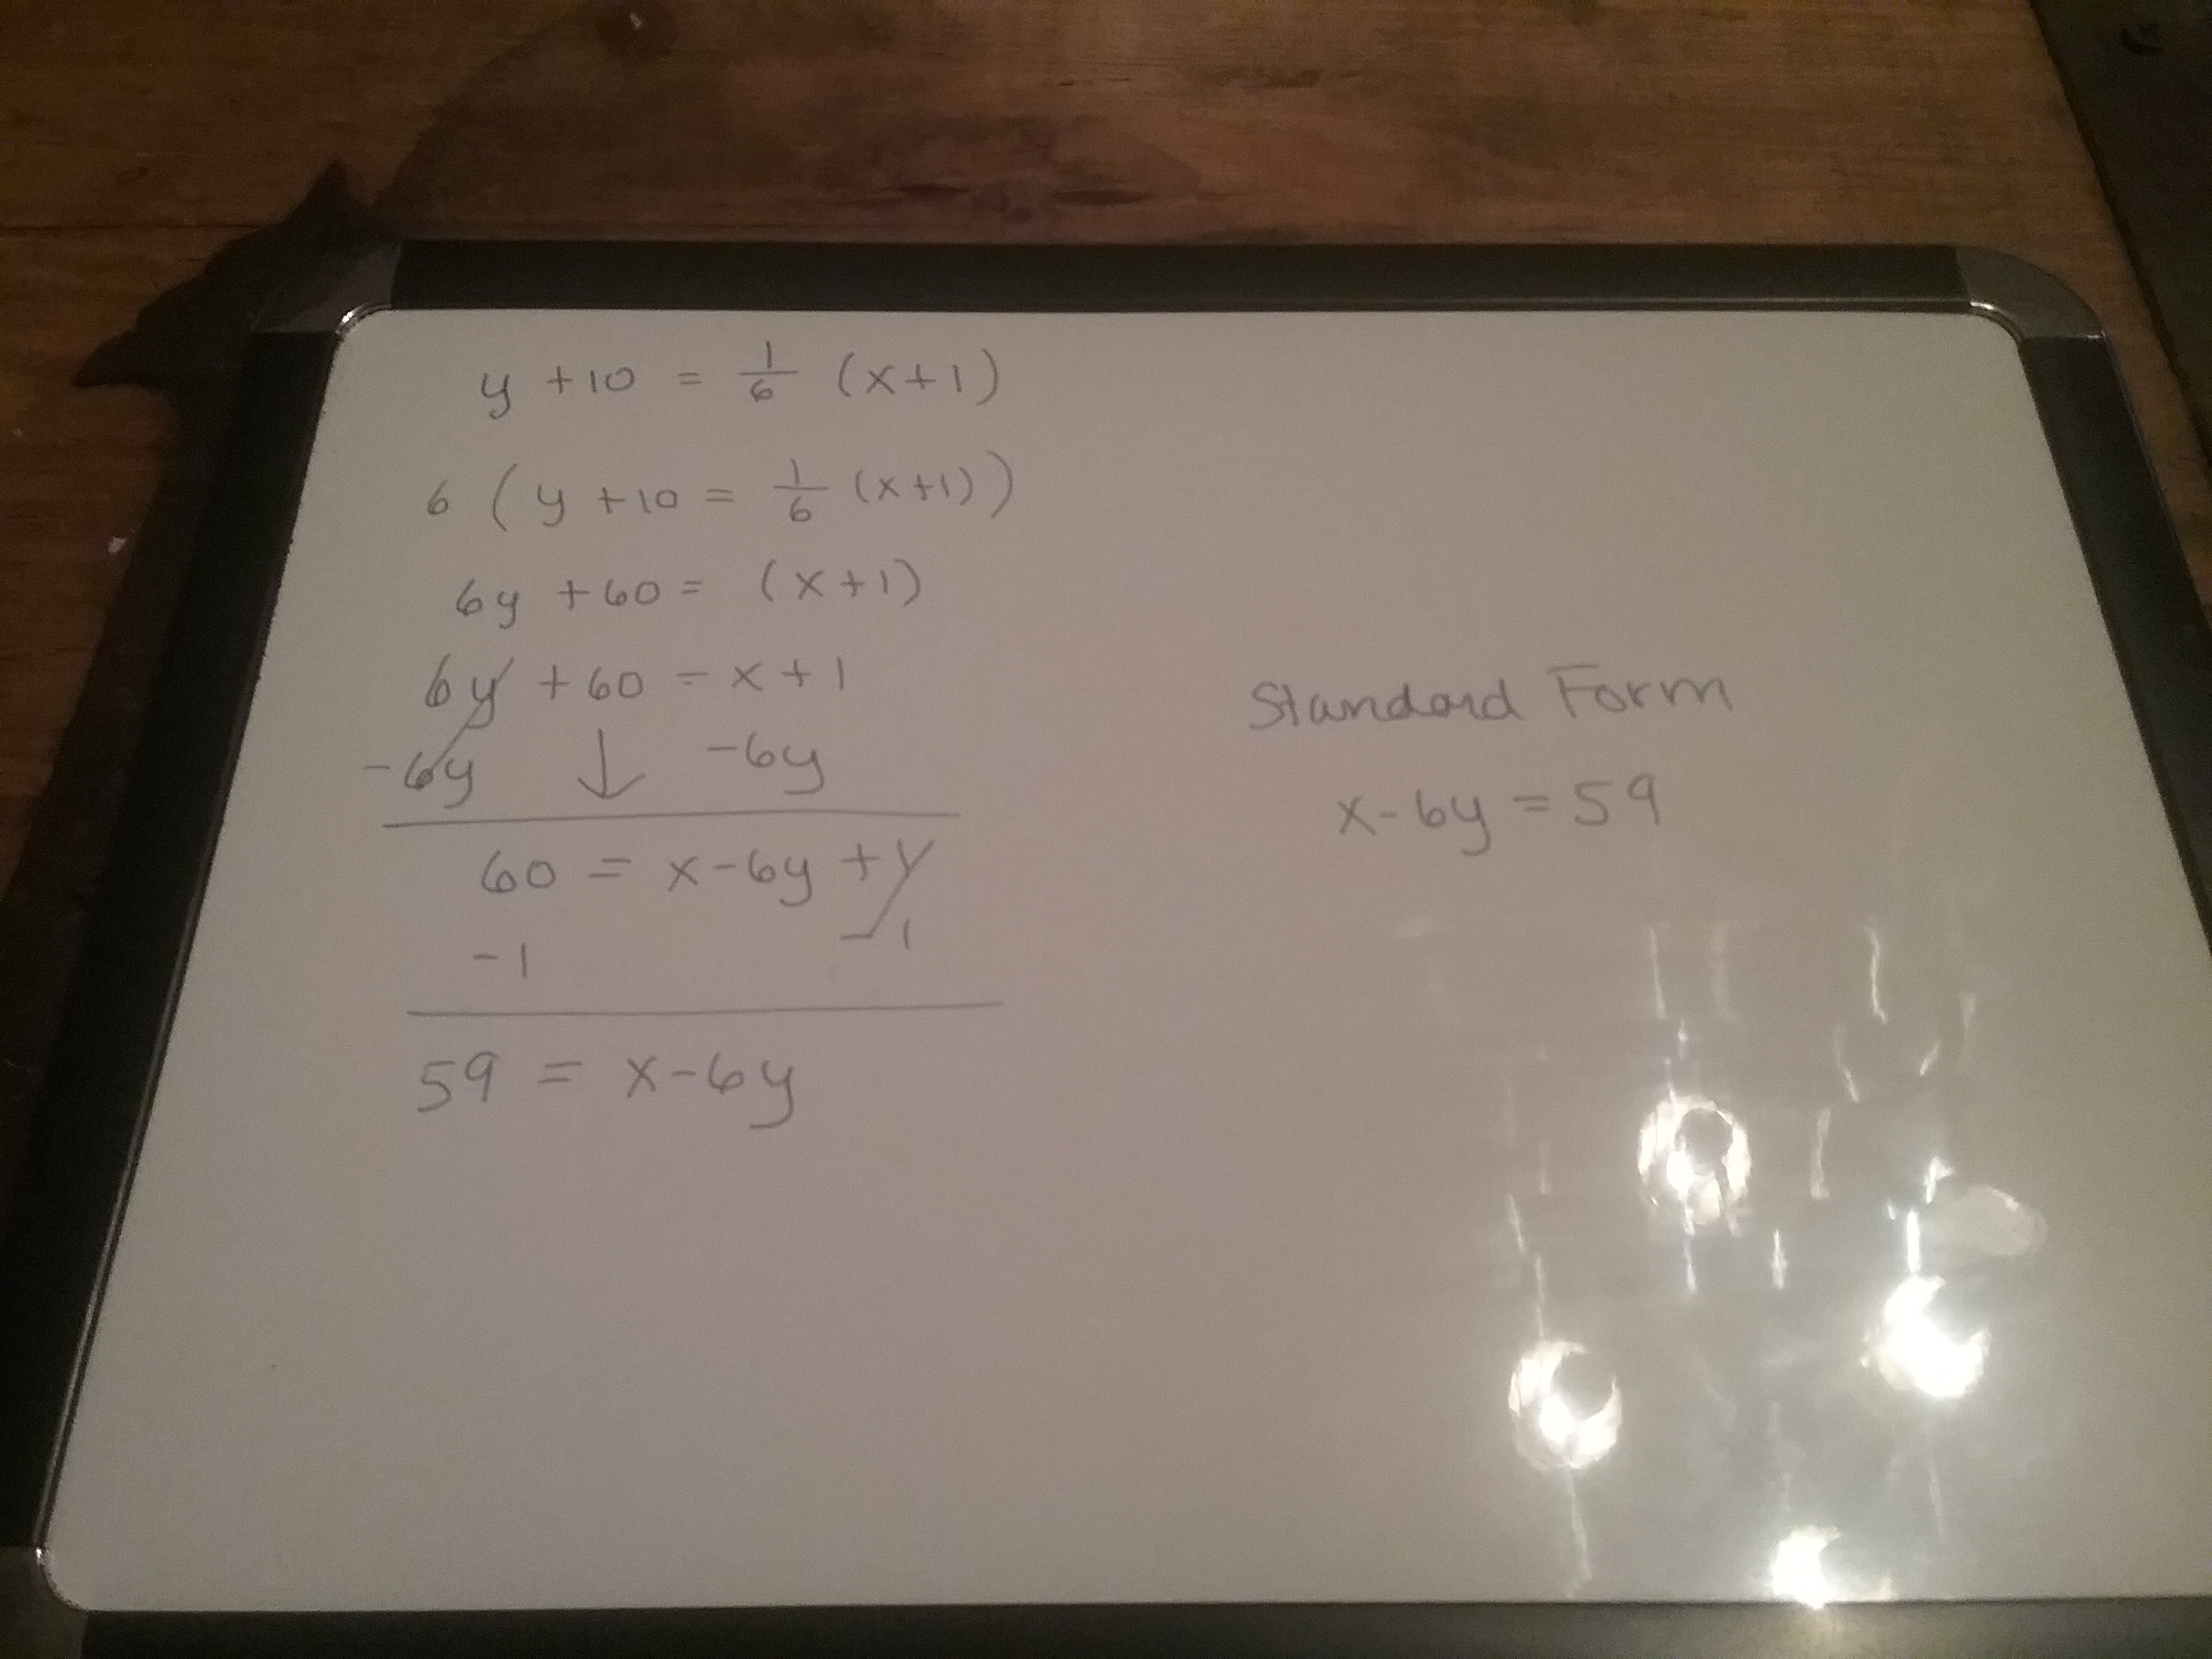 y + 10 = 1/6 (x+1)
6 (y + 10 = 1/6 (x+1))
6y + 60 = (x+1)
6y + 60 = x + 1
-6y ↓ -6y
60 = x - 6y + 1
-1 -1
59 = x - 6y
Standard Form
x - 6y = 59